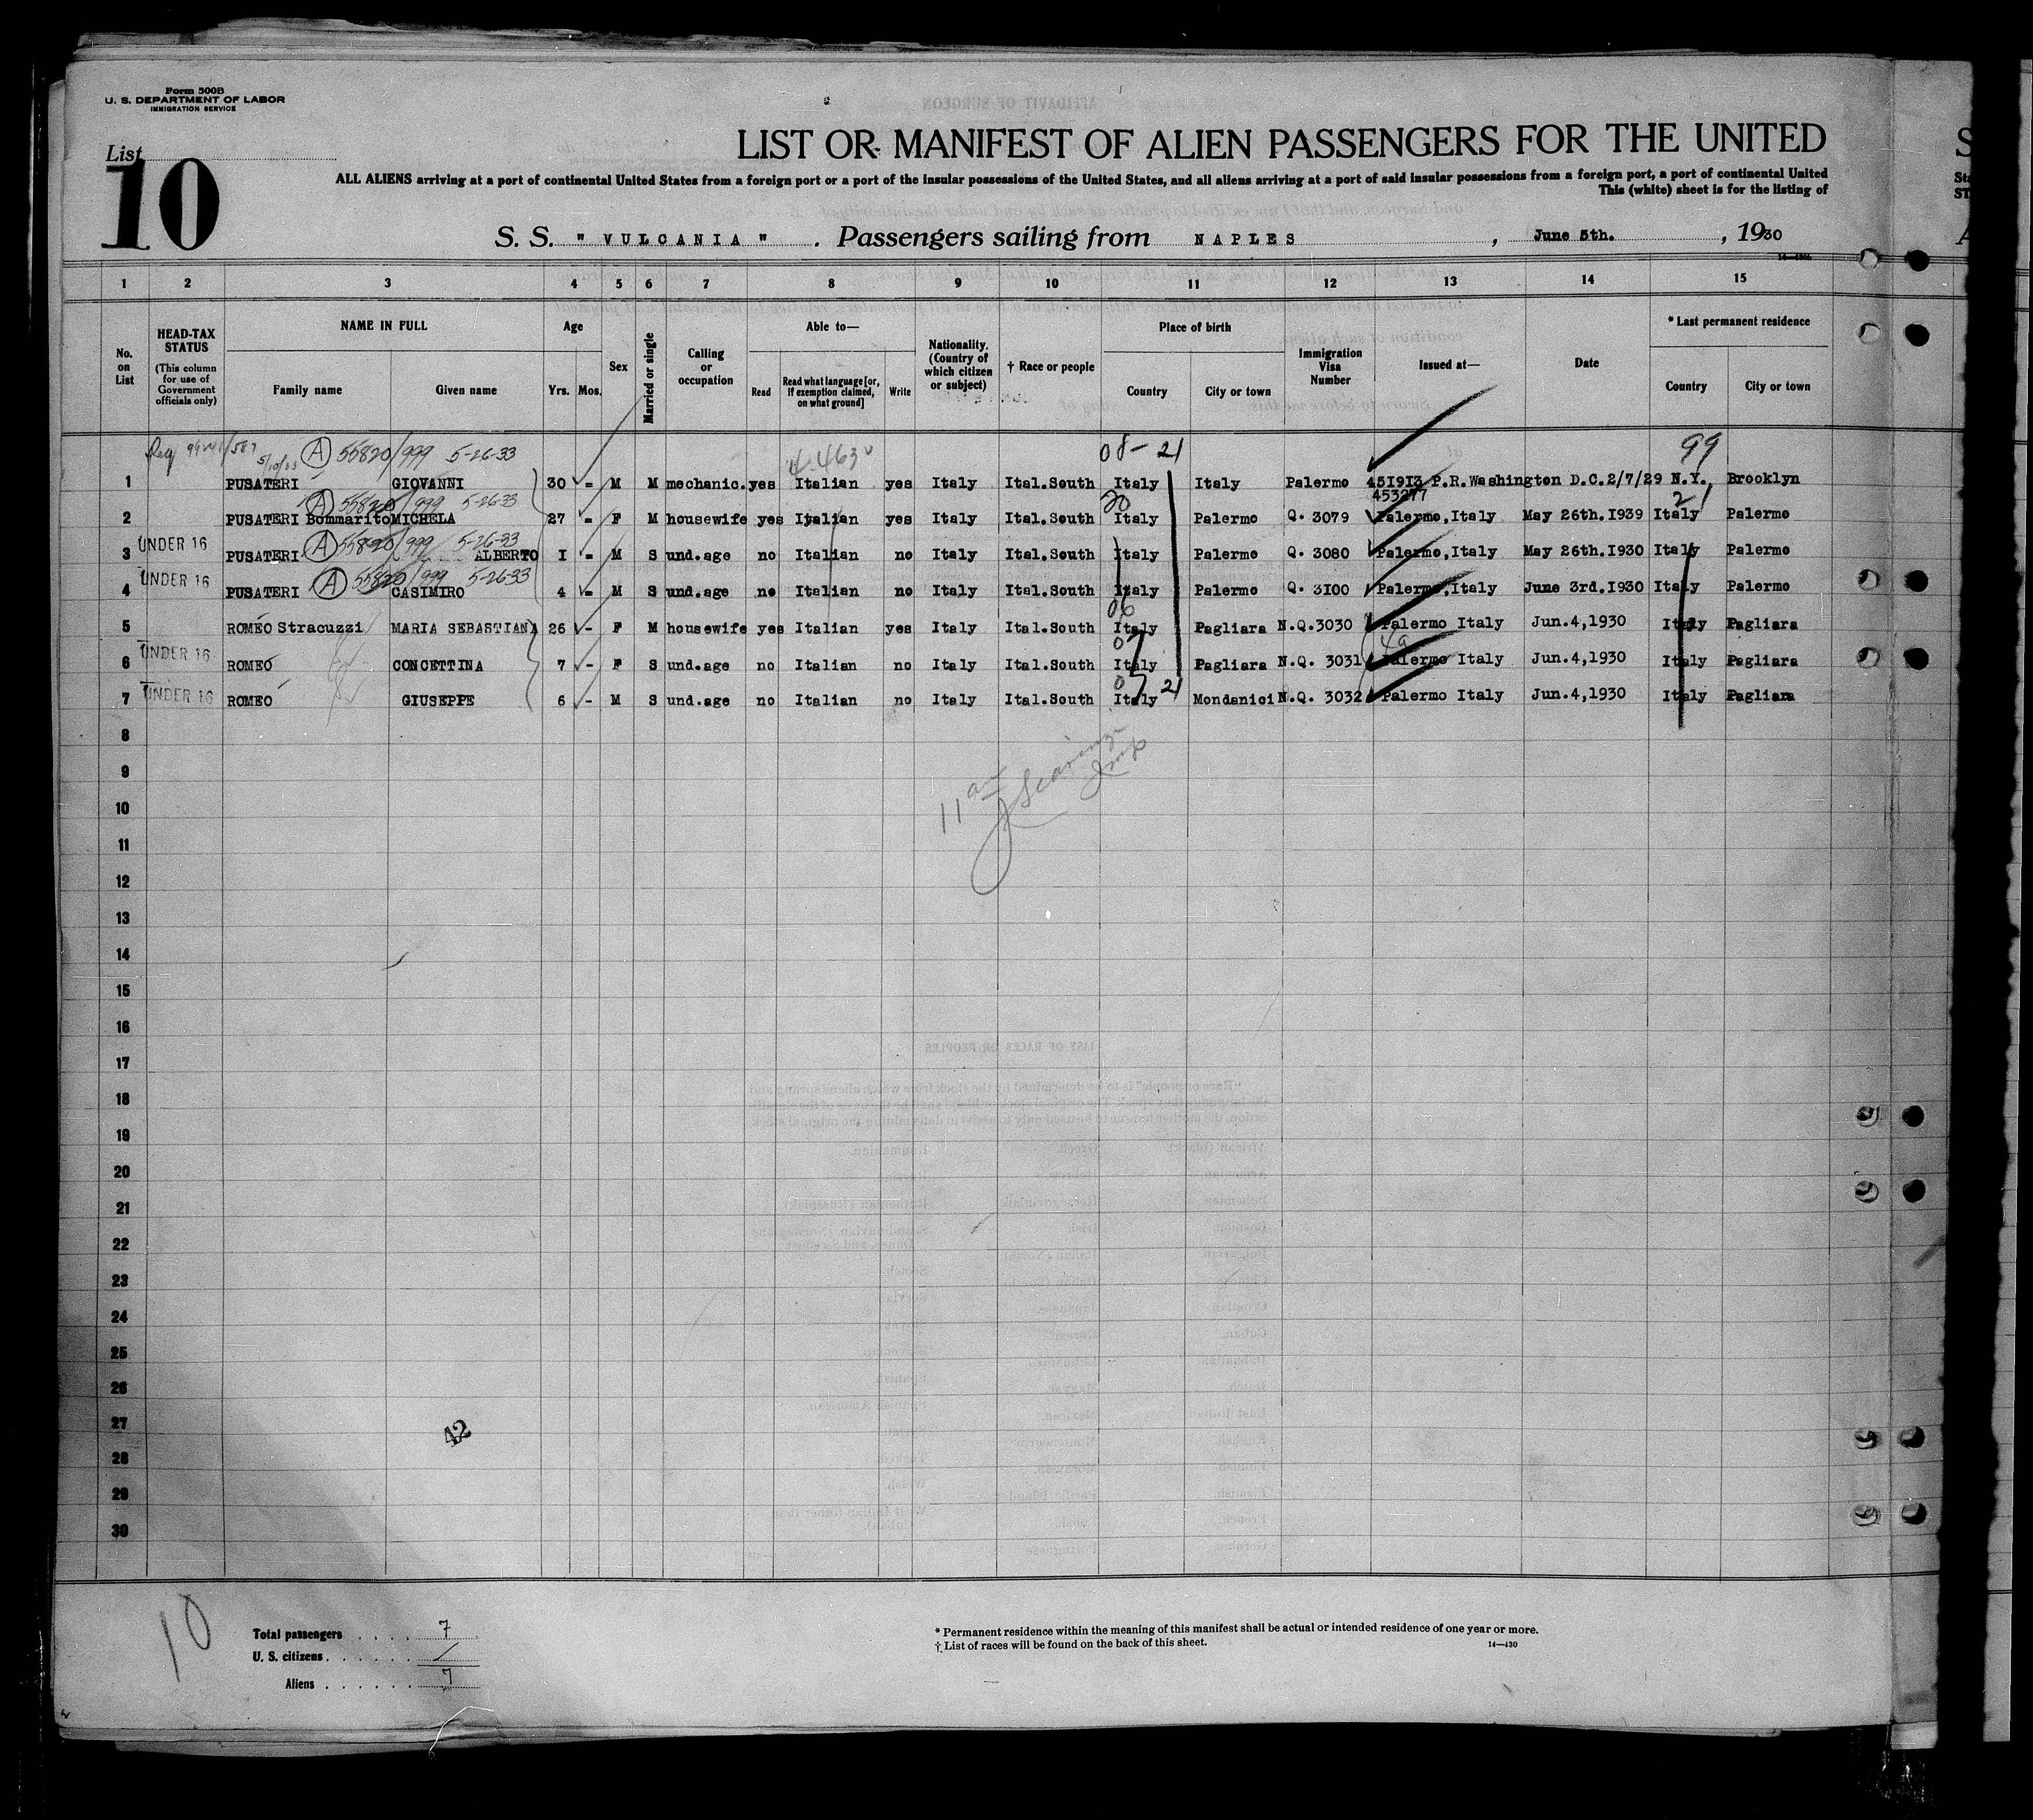 Form 500B
U. S. DEPARTMENT OF LABOR
IMMIGRATION SERVICE
List
10
LIST OR MANIFEST OF ALIEN PASSENGERS FOR THE UNITED
ALL ALIENS arriving at a port of continental United States from a foreign port or a port of the insular possessions of the United States, and all aliens arriving at a port of said insular possessions from a foreign port, a port of continental United
This (white) sheet is for the listing of
S. S. "VULCANIA". Passengers sailing from NAPLES, June 5th., 1930
1 2 3 4 5 6 7 8 9 10 11 12 13 14 15
No. on List
HEAD-TAX STATUS
(This column for use of Government officials only)
NAME IN FULL
Family name Given name
Age
Yrs. Mos.
Sex
Married or single
Calling or occupation
Able to—
Read Read what language [or, if exemption claimed, on what ground] Write
Nationality. (Country of which citizen or subject)
† Race or people
Place of birth
Country City or town
Immigration Visa Number
Issued at—
Date
* Last permanent residence
Country City or town
5/10/33 A 55820/999 5-26-33 08-21 99
1 PUSATERI GIOVANNI 30 - M M mechanic. yes Italian yes Italy Ital.South Italy Italy Palermo 451913 P.R.Washington D.C.2/7/29 N.Y. Brooklyn
A 55820/999 5-26-33 20 453277 21
2 PUSATERI Bommarito MICHELA 27 - F M housewife yes Italian yes Italy Ital.South Italy Palermo Q. 3079 Palermo,Italy May 26th.1939 Italy Palermo
UNDER 16 A 55820/999 5-26-33
3 PUSATERI ALBERTO I - M S und.age no Italian no Italy Ital.South Italy Palermo Q. 3080 Palermo,Italy May 26th.1930 Italy Palermo
UNDER 16 A 55820/999 5-26-33
4 PUSATERI CASIMIRO 4 - M S und.age no Italian no Italy Ital.South Italy Palermo Q. 3100 Palermo,Italy June 3rd.1930 Italy Palermo
06
5 ROMEO Stracuzzi MARIA SEBASTIANA 26 - F M housewife yes Italian yes Italy Ital.South Italy Pagliara N.Q.3030 Palermo Italy Jun.4,1930 Italy Pagliara
UNDER 16
6 ROMEO CONCETTINA 7 - F S und.age no Italian no Italy Ital.South Italy Pagliara N.Q. 3031 Palermo Italy Jun.4,1930 Italy Pagliara
UNDER 16 21
7 ROMEO GIUSEPPE 6 - M S und.age no Italian no Italy Ital.South Italy Mondanici N.Q. 3032 Palermo Italy Jun.4,1930 Italy Pagliara
8
9
10
11
12
13
14
15
16
17
18
19
20
21
22
23
24
25
26
27
28
29
30
42
10
Total passengers . . . . 7
U. S. citizens . . . . . . /
Aliens . . . . . . 7
* Permanent residence within the meaning of this manifest shall be actual or intended residence of one year or more.
† List of races will be found on the back of this sheet.
14—430